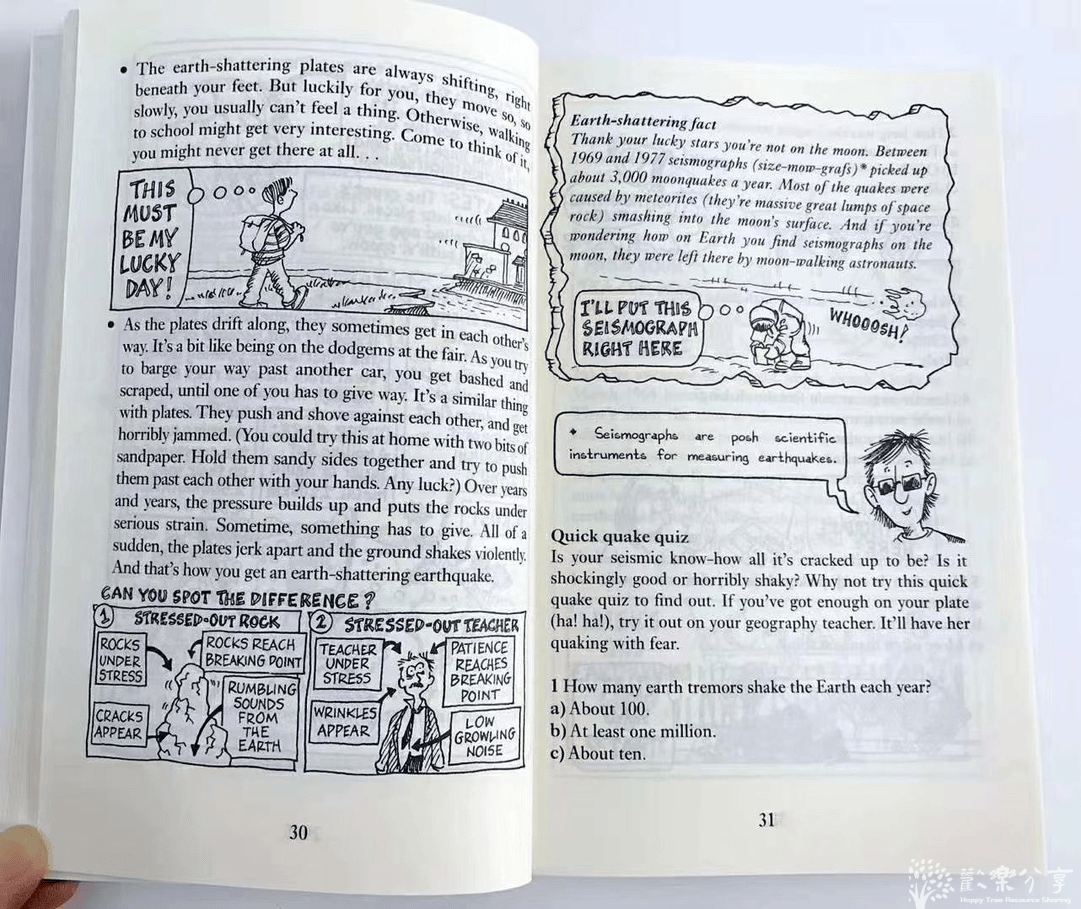 • The earth-shattering plates are always shifting, right
beneath your feet. But luckily for you, they move so, so
slowly, you usually can't feel a thing. Otherwise, walking
to school might get very interesting. Come to think of it,
you might never get there at all. . .
THIS
MUST
BE MY
LUCKY
DAY!
• As the plates drift along, they sometimes get in each other's
way. It's a bit like being on the dodgems at the fair. As you try
to barge your way past another car, you get bashed and
scraped, until one of you has to give way. It's a similar thing
with plates. They push and shove against each other, and get
horribly jammed. (You could try this at home with two bits of
sandpaper. Hold them sandy sides together and try to push
them past each other with your hands. Any luck?) Over years
and years, the pressure builds up and puts the rocks under
serious strain. Sometime, something has to give. All of a
sudden, the plates jerk apart and the ground shakes violently.
And that's how you get an earth-shattering earthquake.
CAN YOU SPOT THE DIFFERENCE?
1 STRESSED-OUT ROCK
ROCKS
UNDER
STRESS
ROCKS REACH
BREAKING POINT
CRACKS
APPEAR
RUMBLING
SOUNDS
FROM
THE
EARTH
2 STRESSED-OUT TEACHER
TEACHER
UNDER
STRESS
PATIENCE
REACHES
BREAKING
POINT
WRINKLES
APPEAR
LOW
GROWLING
NOISE
30
Earth-shattering fact
Thank your lucky stars you're not on the moon. Between
1969 and 1977 seismographs (size-mow-grafs)* picked up
about 3,000 moonquakes a year. Most of the quakes were
caused by meteorites (they're massive great lumps of space
rock) smashing into the moon's surface. And if you're
wondering how on Earth you find seismographs on the
moon, they were left there by moon-walking astronauts.
I'LL PUT THIS
SEISMOGRAPH
RIGHT HERE
WHOOOSH!
* Seismographs are posh scientific
instruments for measuring earthquakes.
Quick quake quiz
Is your seismic know-how all it's cracked up to be? Is it
shockingly good or horribly shaky? Why not try this quick
quake quiz to find out. If you've got enough on your plate
(ha! ha!), try it out on your geography teacher. It'll have her
quaking with fear.
1 How many earth tremors shake the Earth each year?
a) About 100.
b) At least one million.
c) About ten.
31
歡樂分享
Happy Tree Resource Sharing